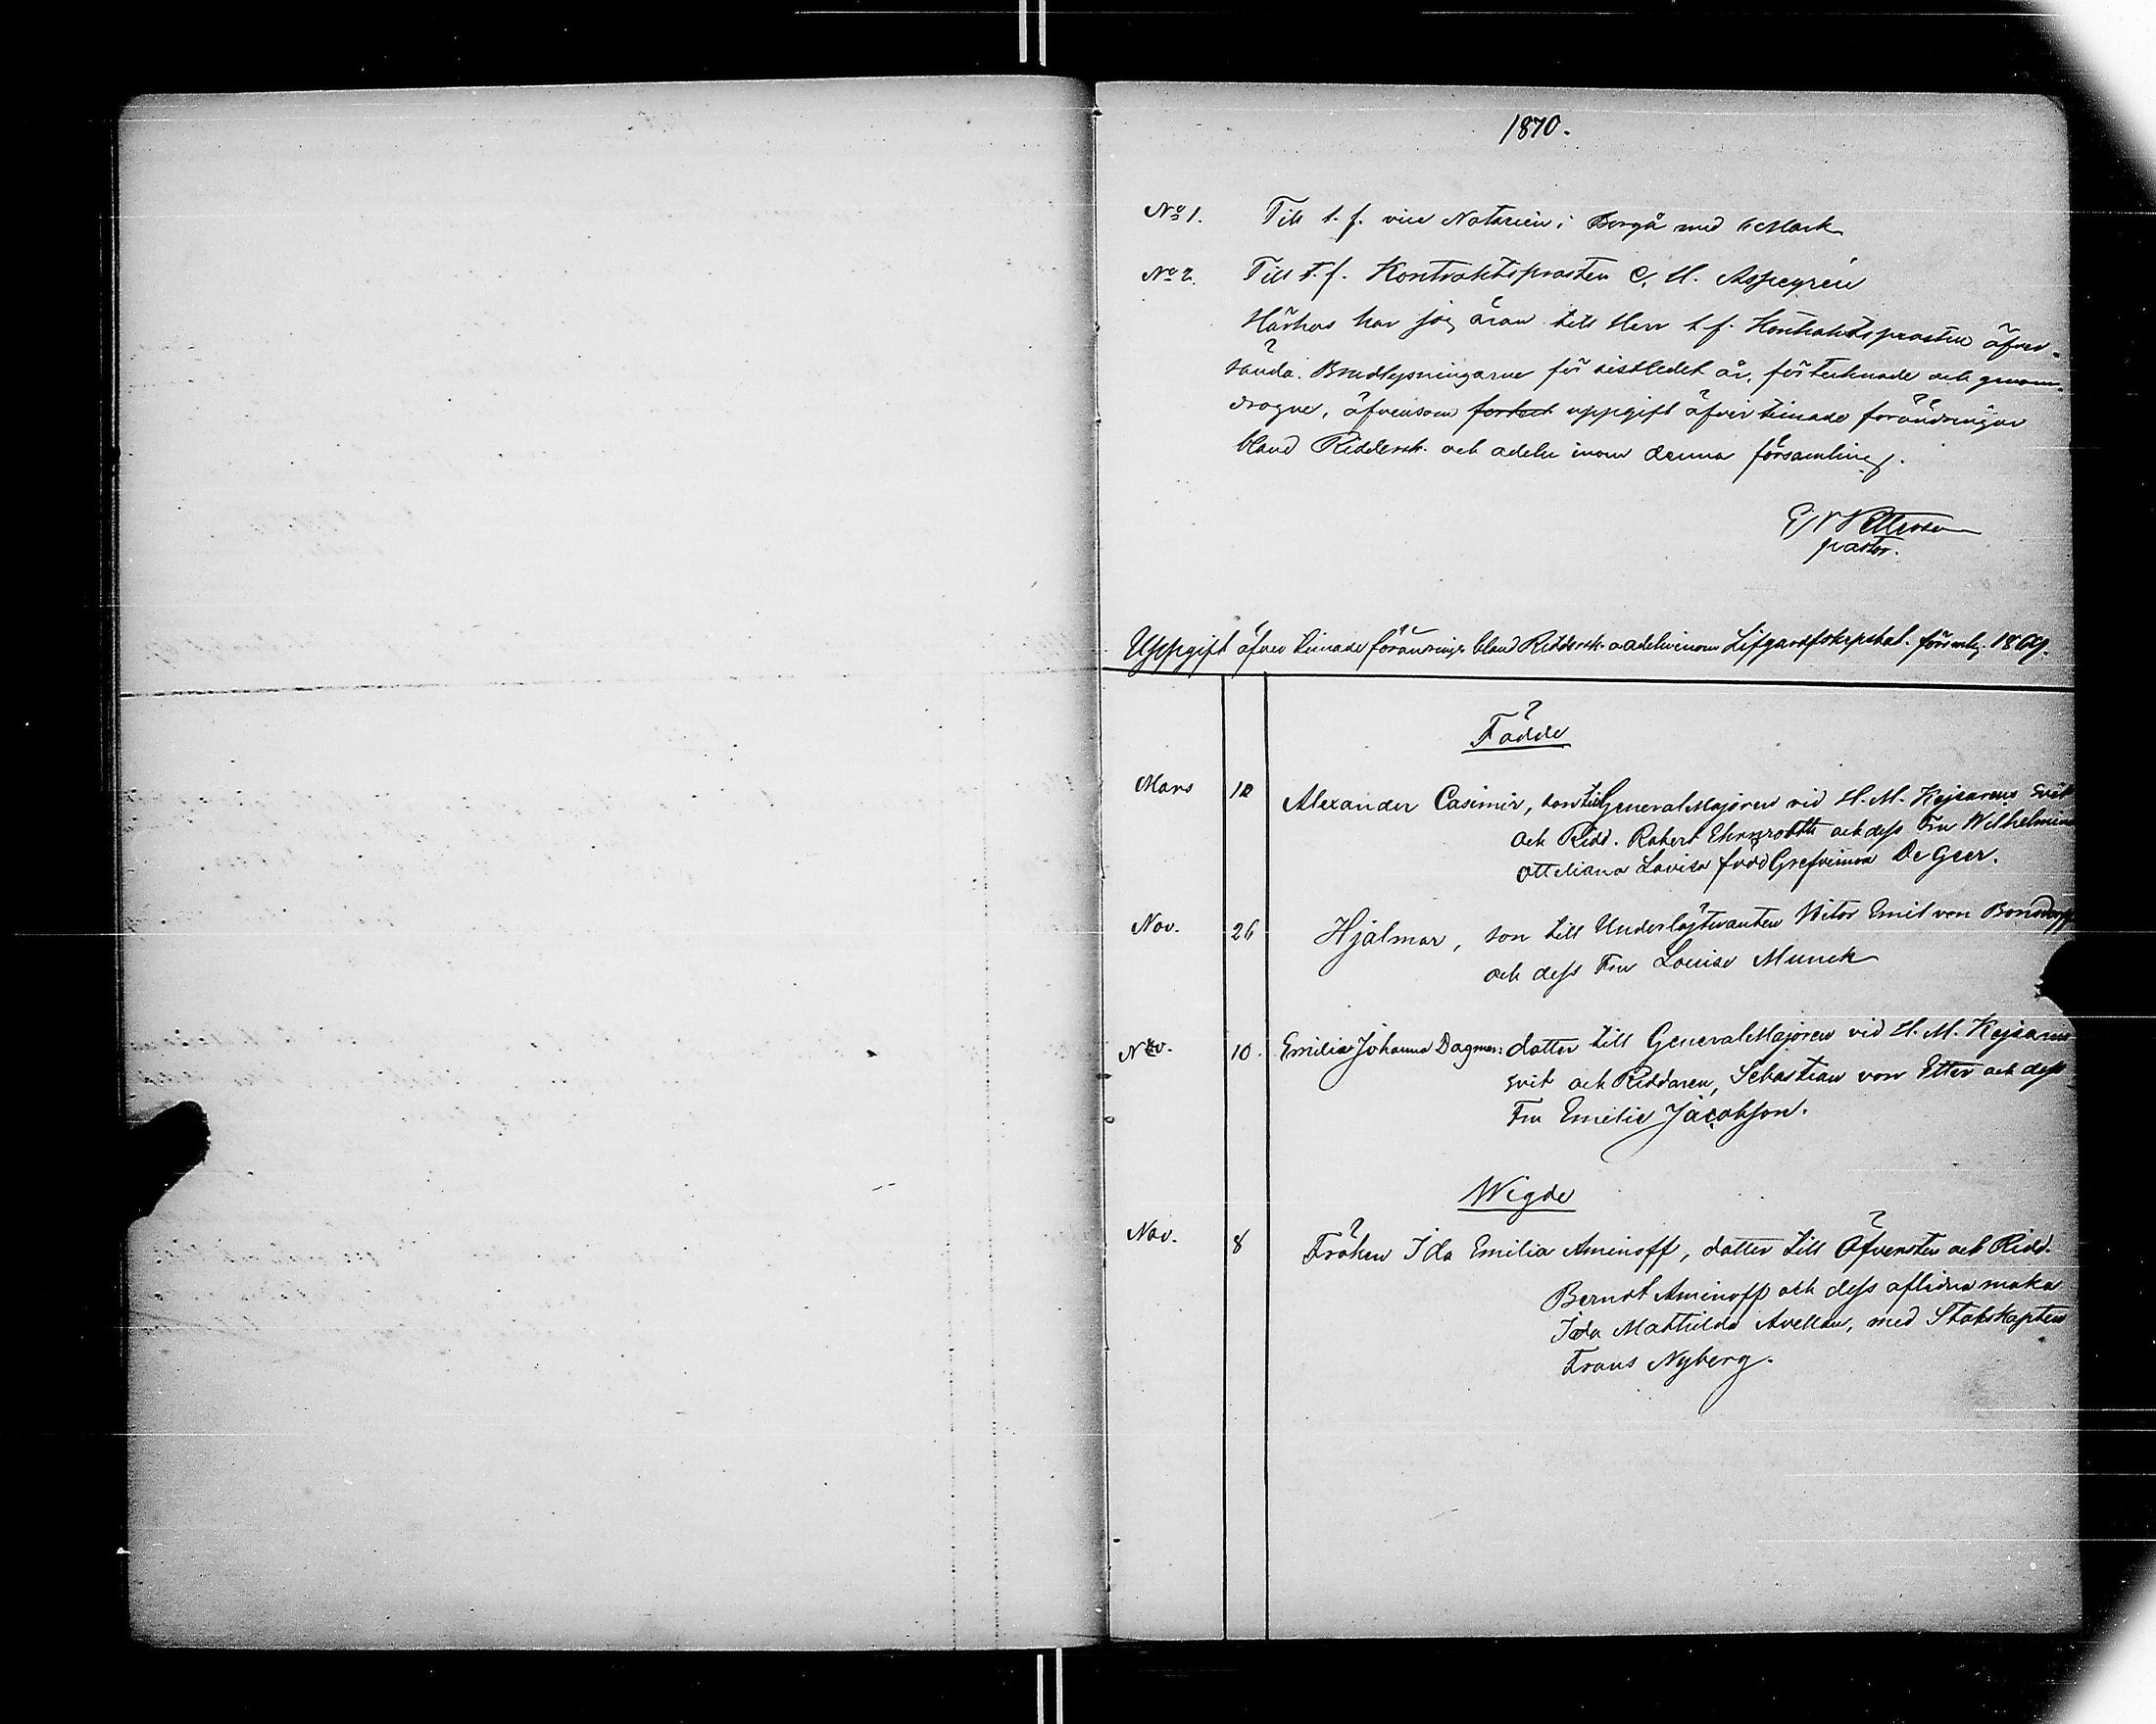 1870.
No 1. Till t. f. vice Notarien i Borgå med 6 Mark
No 2. Till t. f. Kontraktsprosten C. H. Aspegrén
Härhos har jag äran till Herr t f. Kontraktsprosten öfver-
sända Brudlysningarne för sistledet år, försecknade och genom-
dragne, äfvensom uppgift öfver timade förändringar
bland Riddersk. och adeln inom denna församling.
Pettersson
pastor.
Uppgift öfver timade förändringar bland Riddersk. o adeln inom Lifgardsförsmlg. 1869.
Födde
Mars 12 Alexander Casimir, son till GeneralMajoren vid H. M. Kejsarens Svit
och Ridd. Robert Ehrnrooth och dess Fru Wilhelmina
Otteliana Lovisa född Grefvinna De Geer.
Nov. 26 Hjalmar, son till Underlöjtnanten Victor Emil von Bonsdorff
och dess Fru Louise Munck
Nov. 10. Emilia Johanna Dagmar: dotter till GeneralMajoren vid H. M. Kejsarens
svit och Riddaren, Sebastian von Etter och dess
Fru Emilie Jacobson.
Wigde
Nov. 8 Fröken Ida Emilia Aminoff, dotter till Öfversten och Ridd.
Berndt Aminoff och dess aflidna maka
Ida Mathilda Avellan, med Stabskapten
Frans Nyberg.